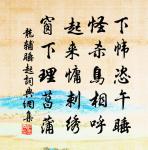 下怖恣午睡
怪杀鳥相呼
起来慵刺绣
窗下理菖蒲
龍輔睡起詞典網集